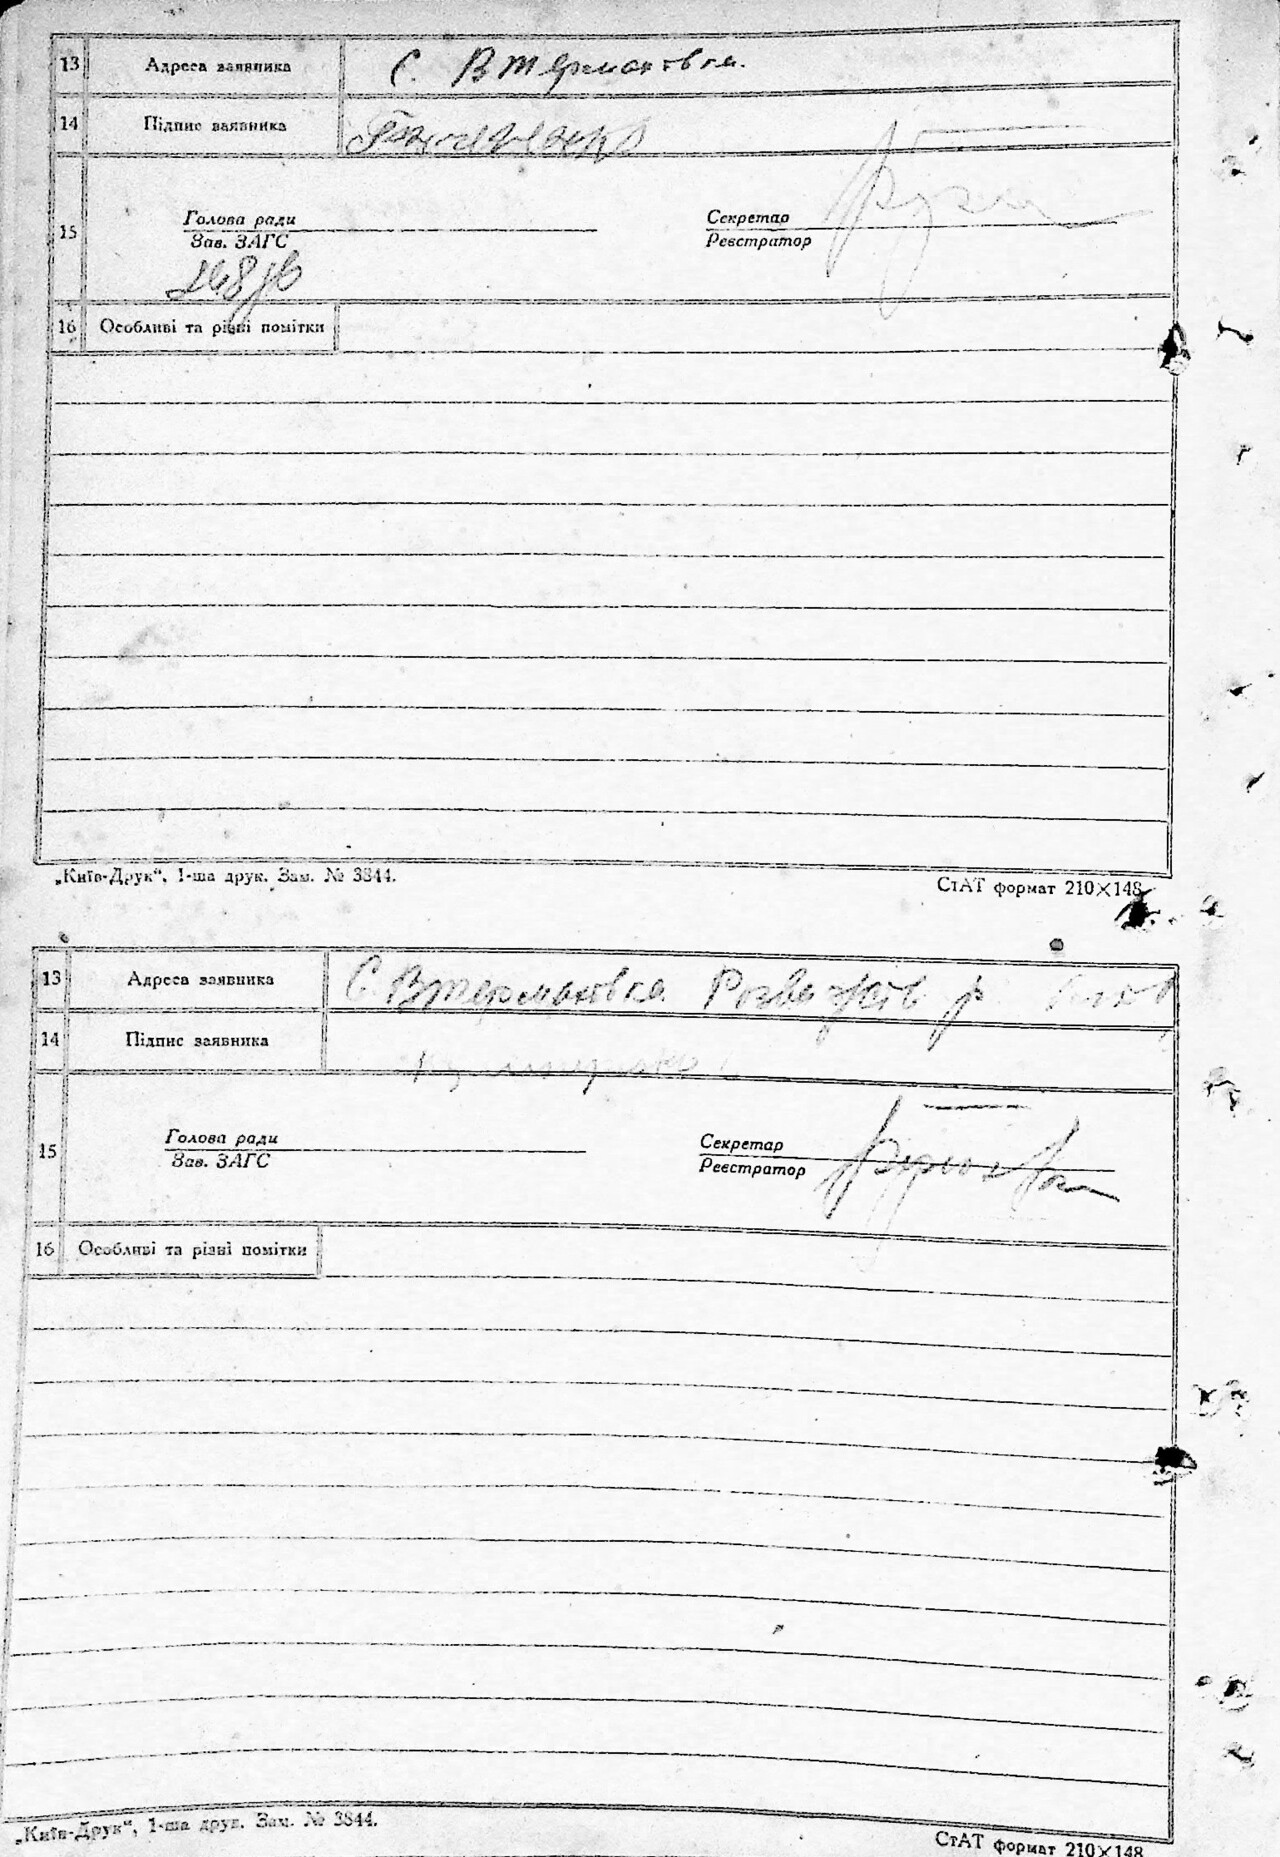 13 Адреса заявника С. Втермановка.
14 Підпис заявника
15 Голова ради Секретар
Зав. ЗАГС Реєстратор
16 Особливі та різні помітки
„Київ-Друк“, 1-ша друк. Зам. № 3844.
СтАТ формат 210×148
13 Адреса заявника С. Втермановка Розважів р
14 Підпис заявника
15 Голова ради Секретар
Зав. ЗАГС Реєстратор
16 Особливі та різні помітки
„Київ-Друк“, 1-ша друк. Зам. № 3844.
СтАТ формат 210×148